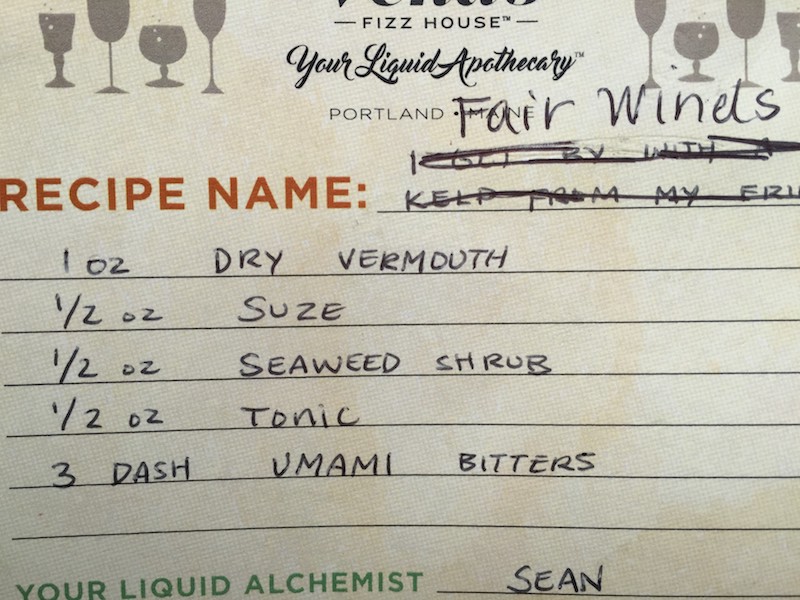 FIZZ HOUSE™
Your Liquid Apothecary™
PORTLAND • MAINE
Fair Winds
I GET BY WITH A
RECIPE NAME: KELP FROM MY
1 oz DRY VERMOUTH
1/2 oz SUZE
1/2 oz SEAWEED SHRUB
1/2 oz TONIC
3 DASH UMAMI BITTERS
YOUR LIQUID ALCHEMIST SEAN